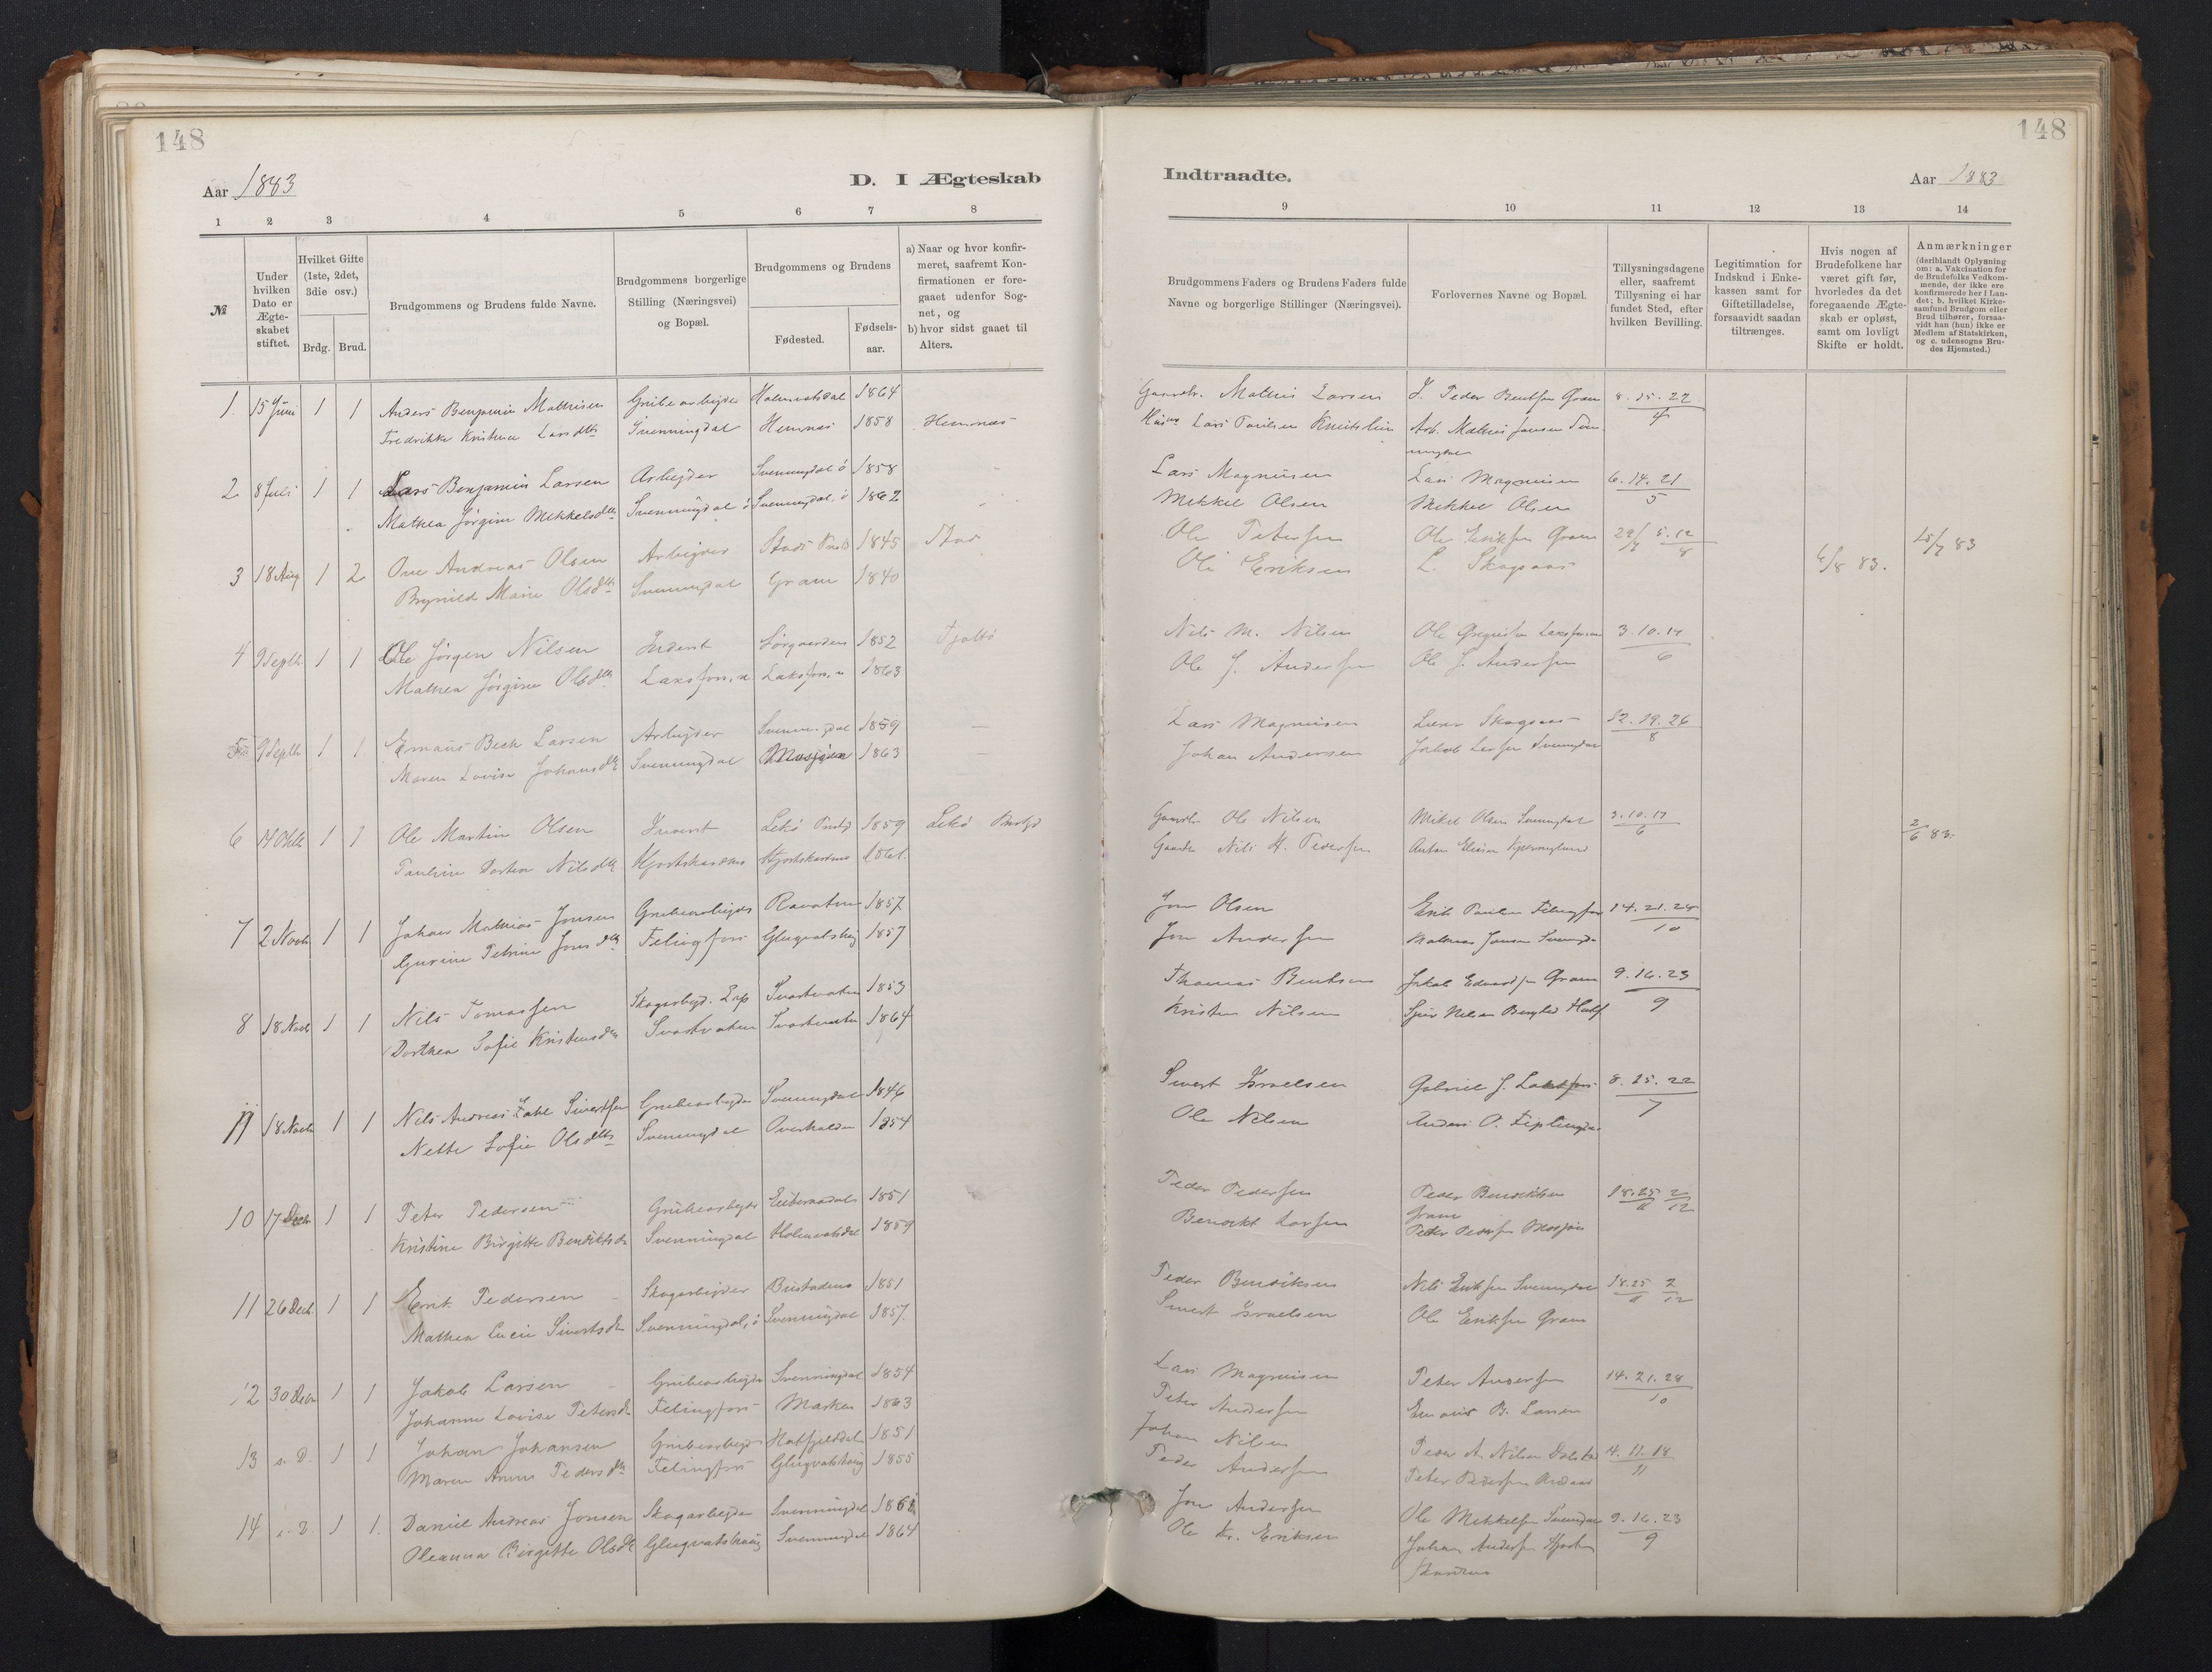 148
148
Aar 1883
D. I Ægteskab
Indtraadte.
Aar 1883
1 2 3 4 5 6 7 8
9 10 11 12 13 14
№
Under hvilken Dato er Ægteskabet stiftet.
Hvilket Gifte (1ste, 2det, 3die osv.)
Brdg. Brud.
Brudgommens og Brudens fulde Navne.
Brudgommens borgerlige Stilling (Næringsvei) og Bopæl.
Brudgommens og Brudens
Fødested.
Fødselsaar.
a) Naar og hvor konfirmeret, saafremt Konfirmationen er foregaaet udenfor Sognet, og
b) hvor sidst gaaet til Alters.
Brudgommens Faders og Brudens Faders fulde Navne og borgerlige Stillinger (Næringsvei).
Forlovernes Navne og Bopæl.
Tillysningsdagene eller, saafremt Tillysning ei har fundet Sted, efter hvilken Bevilling.
Legitimation for Indskud i Enkekassen samt for Giftetilladelse, forsaavidt saadan tiltrænges.
Hvis nogen af Brudefolkene har været gift før, hvorledes da det foregaaende Ægteskab er opløst, samt om lovligt Skifte er holdt.
Anmærkninger (deriblandt Oplysning om: a. Vakcination for de Brudefolks Vedkommende, der ikke ere konfirmerede her i Landet; b. hvilket Kirkesamfund Brudgom eller Brud tilhører, forsaavidt han (hun) ikke er Medlem af Statskirken, og c. udensogns Brudes Hjemsted.)
1. 15 Juni 1 1 Anders Benjamin Mathisen Grubearbeider Holmvatsdal 1864 Mathis Larsen Peder Bentsen Gram 8. 15. 22
Fredrikke Kristine Larsdtr Svenningdal Hemnæs 1858 Hemnæs Lars Paulsen 4
2 8 Juli 1 1 Lars Benjamin Larsen Arbejder Svenningdal ö 1858 Lars Magnusen Lars Magnusen 6. 14. 21
Mathea Jörgine Mekkelsdtr Svenningdal ö Svenningdal ö 1862 Mekkel Olsen Mekkel Olsen 5
3 18 Aug 1 2 Ove Andreas Olsen Arbejder 1845 Ole Petersen Ole Eriksen Gram 29/7 5. 12 15/7 83
Brynild Marie Olsdtr Svenningdal Gram 1840 Ole Eriksen L. Skogsaas 8 6/8 83.
4 9 Septb 1 1 Ole Jörgen Nilsen Inderst 1852 Tjøttø Nils M. Nilsen Ole 3. 10. 17
Mathea Jörgine Olsdtr Laksfors, n Laksfors, n 1863 Ole J. Andersen Ole J. Andersen 6
5 9 Septb 1 1 Emaus Bech Larsen Arbejder Svenningdal 1859 Lars Magnusen Skogsaas 12. 19. 26
Maren Lovise Johansdtr Svenningdal Mosjøen 1863 Johan Andersen Jakob Larsen Svenningdal 8
6 14 Oktb 1 1 Ole Martin Olsen Inderst Lekö 1859 Lekö Ole Nilsen Mikel Olsen Svenningdal 3. 10. 17 2/6 83.
Pauline Dortea Nilsdtr Hjortskardmo Hjortskardmo 1861. Nils H. Pedersen Anton 6
7 2 Novb 1 1 Johan Mathias Jonsen Grubearbejder 1857 Jon Olsen Erik Paulsen 14. 21. 28
Gurine Petrine Jonsdtr Felingfors Glugvatshaug 1857 Jon Andersen Mathias Jonsen 10
8 18 Novb 1 1 Nils Tomassen Skogarbejd. Svartvatn 1853 Thomas Bentsen Jakob Gram 9. 16. 23
Dorthea Sofie Kristensdtr Svartvatn Svartvatn 1864 Kristen Nilsen Nilsen 9
18 Novb 1 1 Nils Andreas Sivertsen Grubearbejder Svenningdal 1846 Sivert Israelsen Gabriel J. Laksfors 8. 15. 22
Nette Sofie Olsdtr Svenningdal Overhalden 1854 Ole Nilsen Anders O. 7
10 17 Decb 1 1 Peter Pedersen Grubearbejder 1851 Peder Pedersen Peder Bendiktsen Gram 18. 25 2
Kristine Birgitte Bendiktsdtr Svenningdal Holmvatsdal 1859 Bendikt Larsen Peder Pedersen Mosjøen 11 12
11 26 Decb 1 1 Erik Pedersen Skogarbejder 1851 Peder Nils Eriksen Svenningdal 18. 25 2
Mathea Lucie Sivertsdtr Svenningdal, ö Svenningdal 1857. Sivert Israelsen Ole Eriksen Gram 11 12
12 30 Decbr 1 1 Jakob Larsen Grubearbejder Svenningdal 1854 Lars Magnusen Peter Andersen 14. 21. 28
Johanne Lovise Petersdtr Felingfors 1863 Peter Andersen Emaus B. Larsen 10
13 s. D. 1 1 Johan Johansen Grubearbejder Hatfjelddal 1851 Johan Nilsen Peder A. Nilsen 4. 11. 18
Maren Anna Pedersdtr Felingfors Glugvatshaug 1855 Peder Andersen Peter Pedersen 11
14 s. D. 1 1. Daniel Andreas Jonsen Skogarbejder Svenningdal Jon Andersen Ole Mekkelsen Svenningdal 9. 16. 23
Oleanna Birgitte Olsdtr Glugvatshaug Svenningdal 1864 Ole Kr. Eriksen Johan Andersen 9